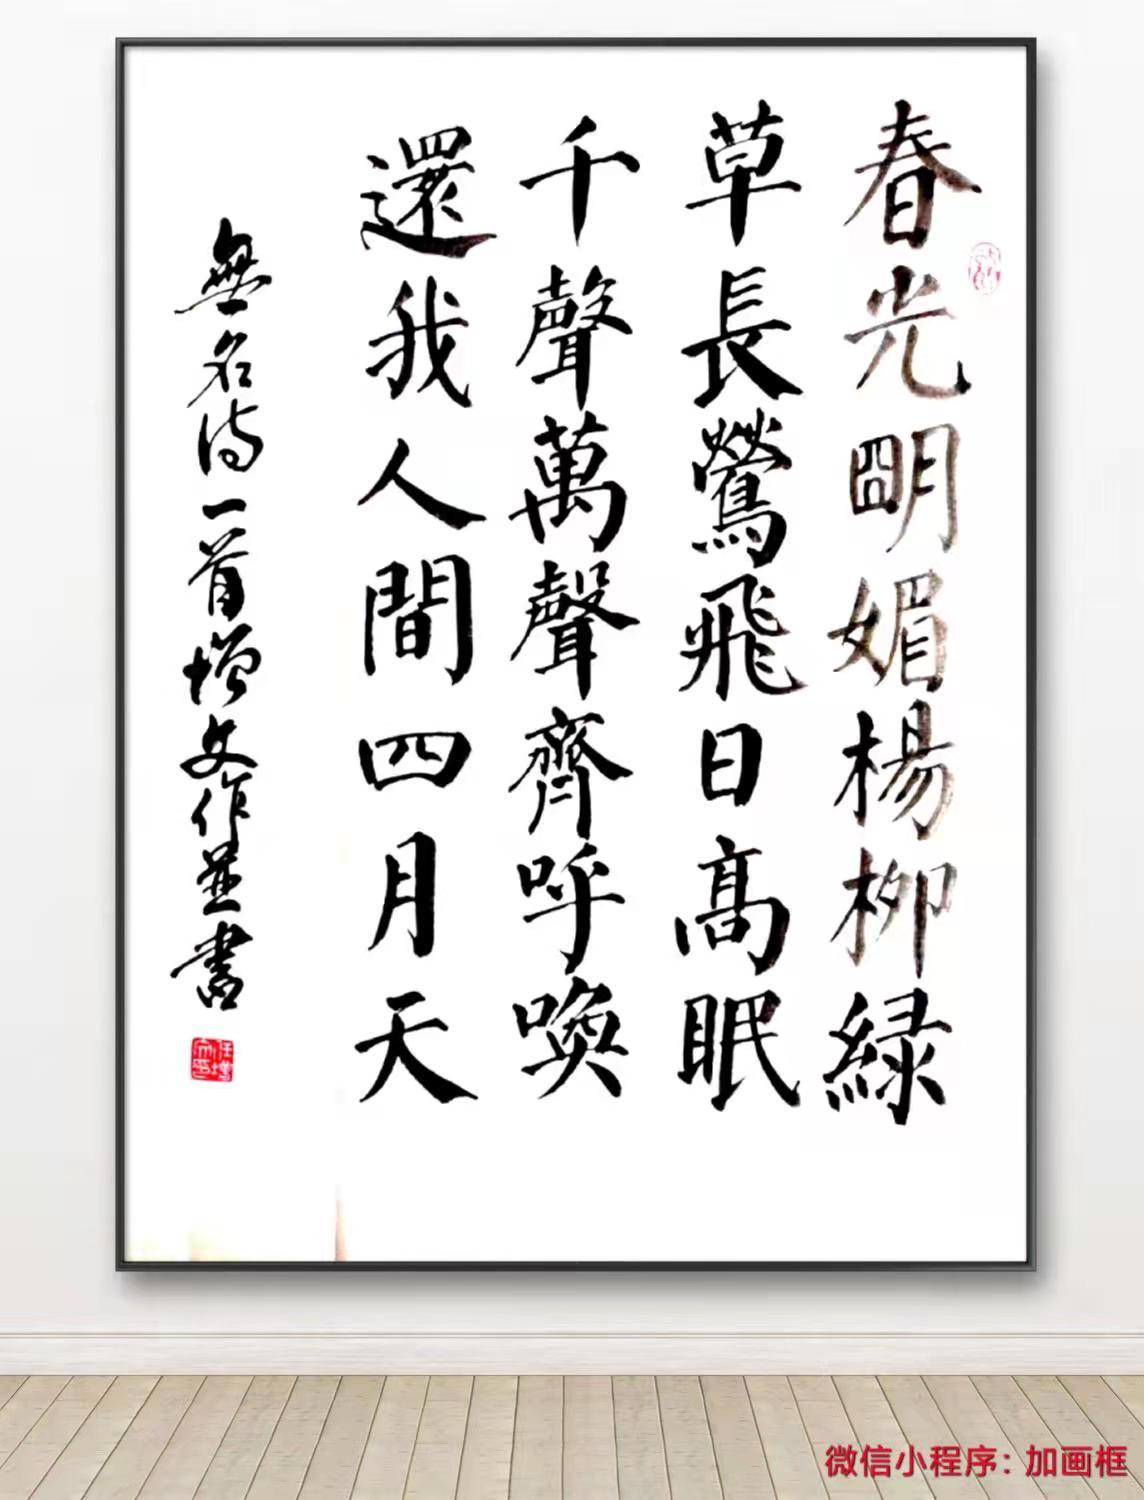 春光明媚楊柳緑
草長鶯飛日高眠
千聲萬聲齊呼喚
還我人間四月天
無名诗一首增文作並書
微信小程序：加画框